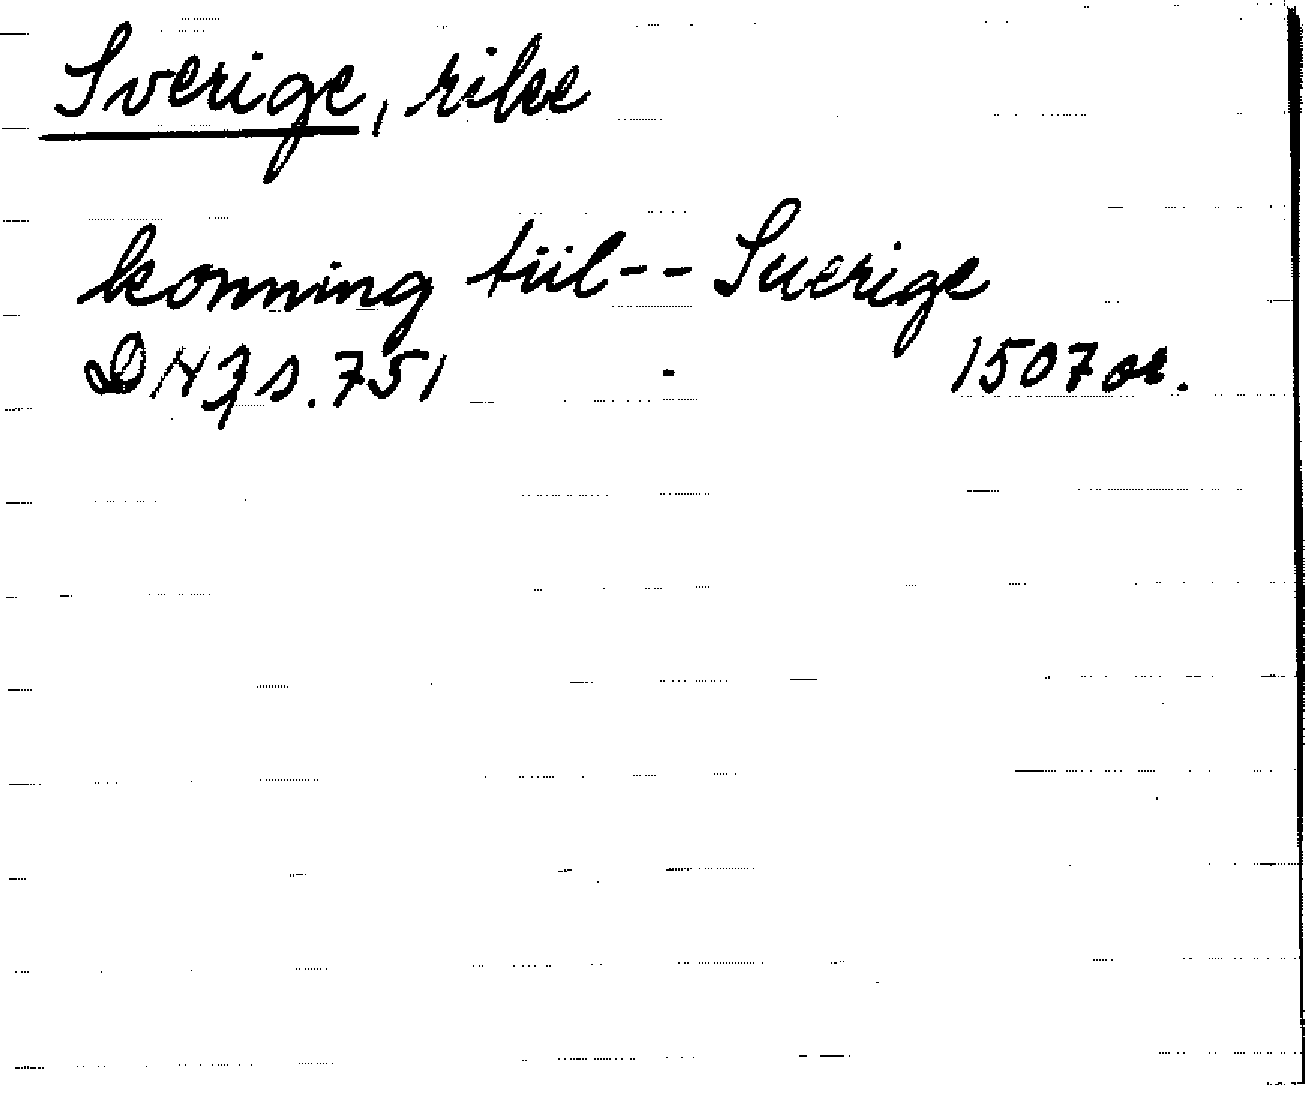 Sverige, rike
konning tiil -- Suerige
DN 3 s. 751 - 1507 or.